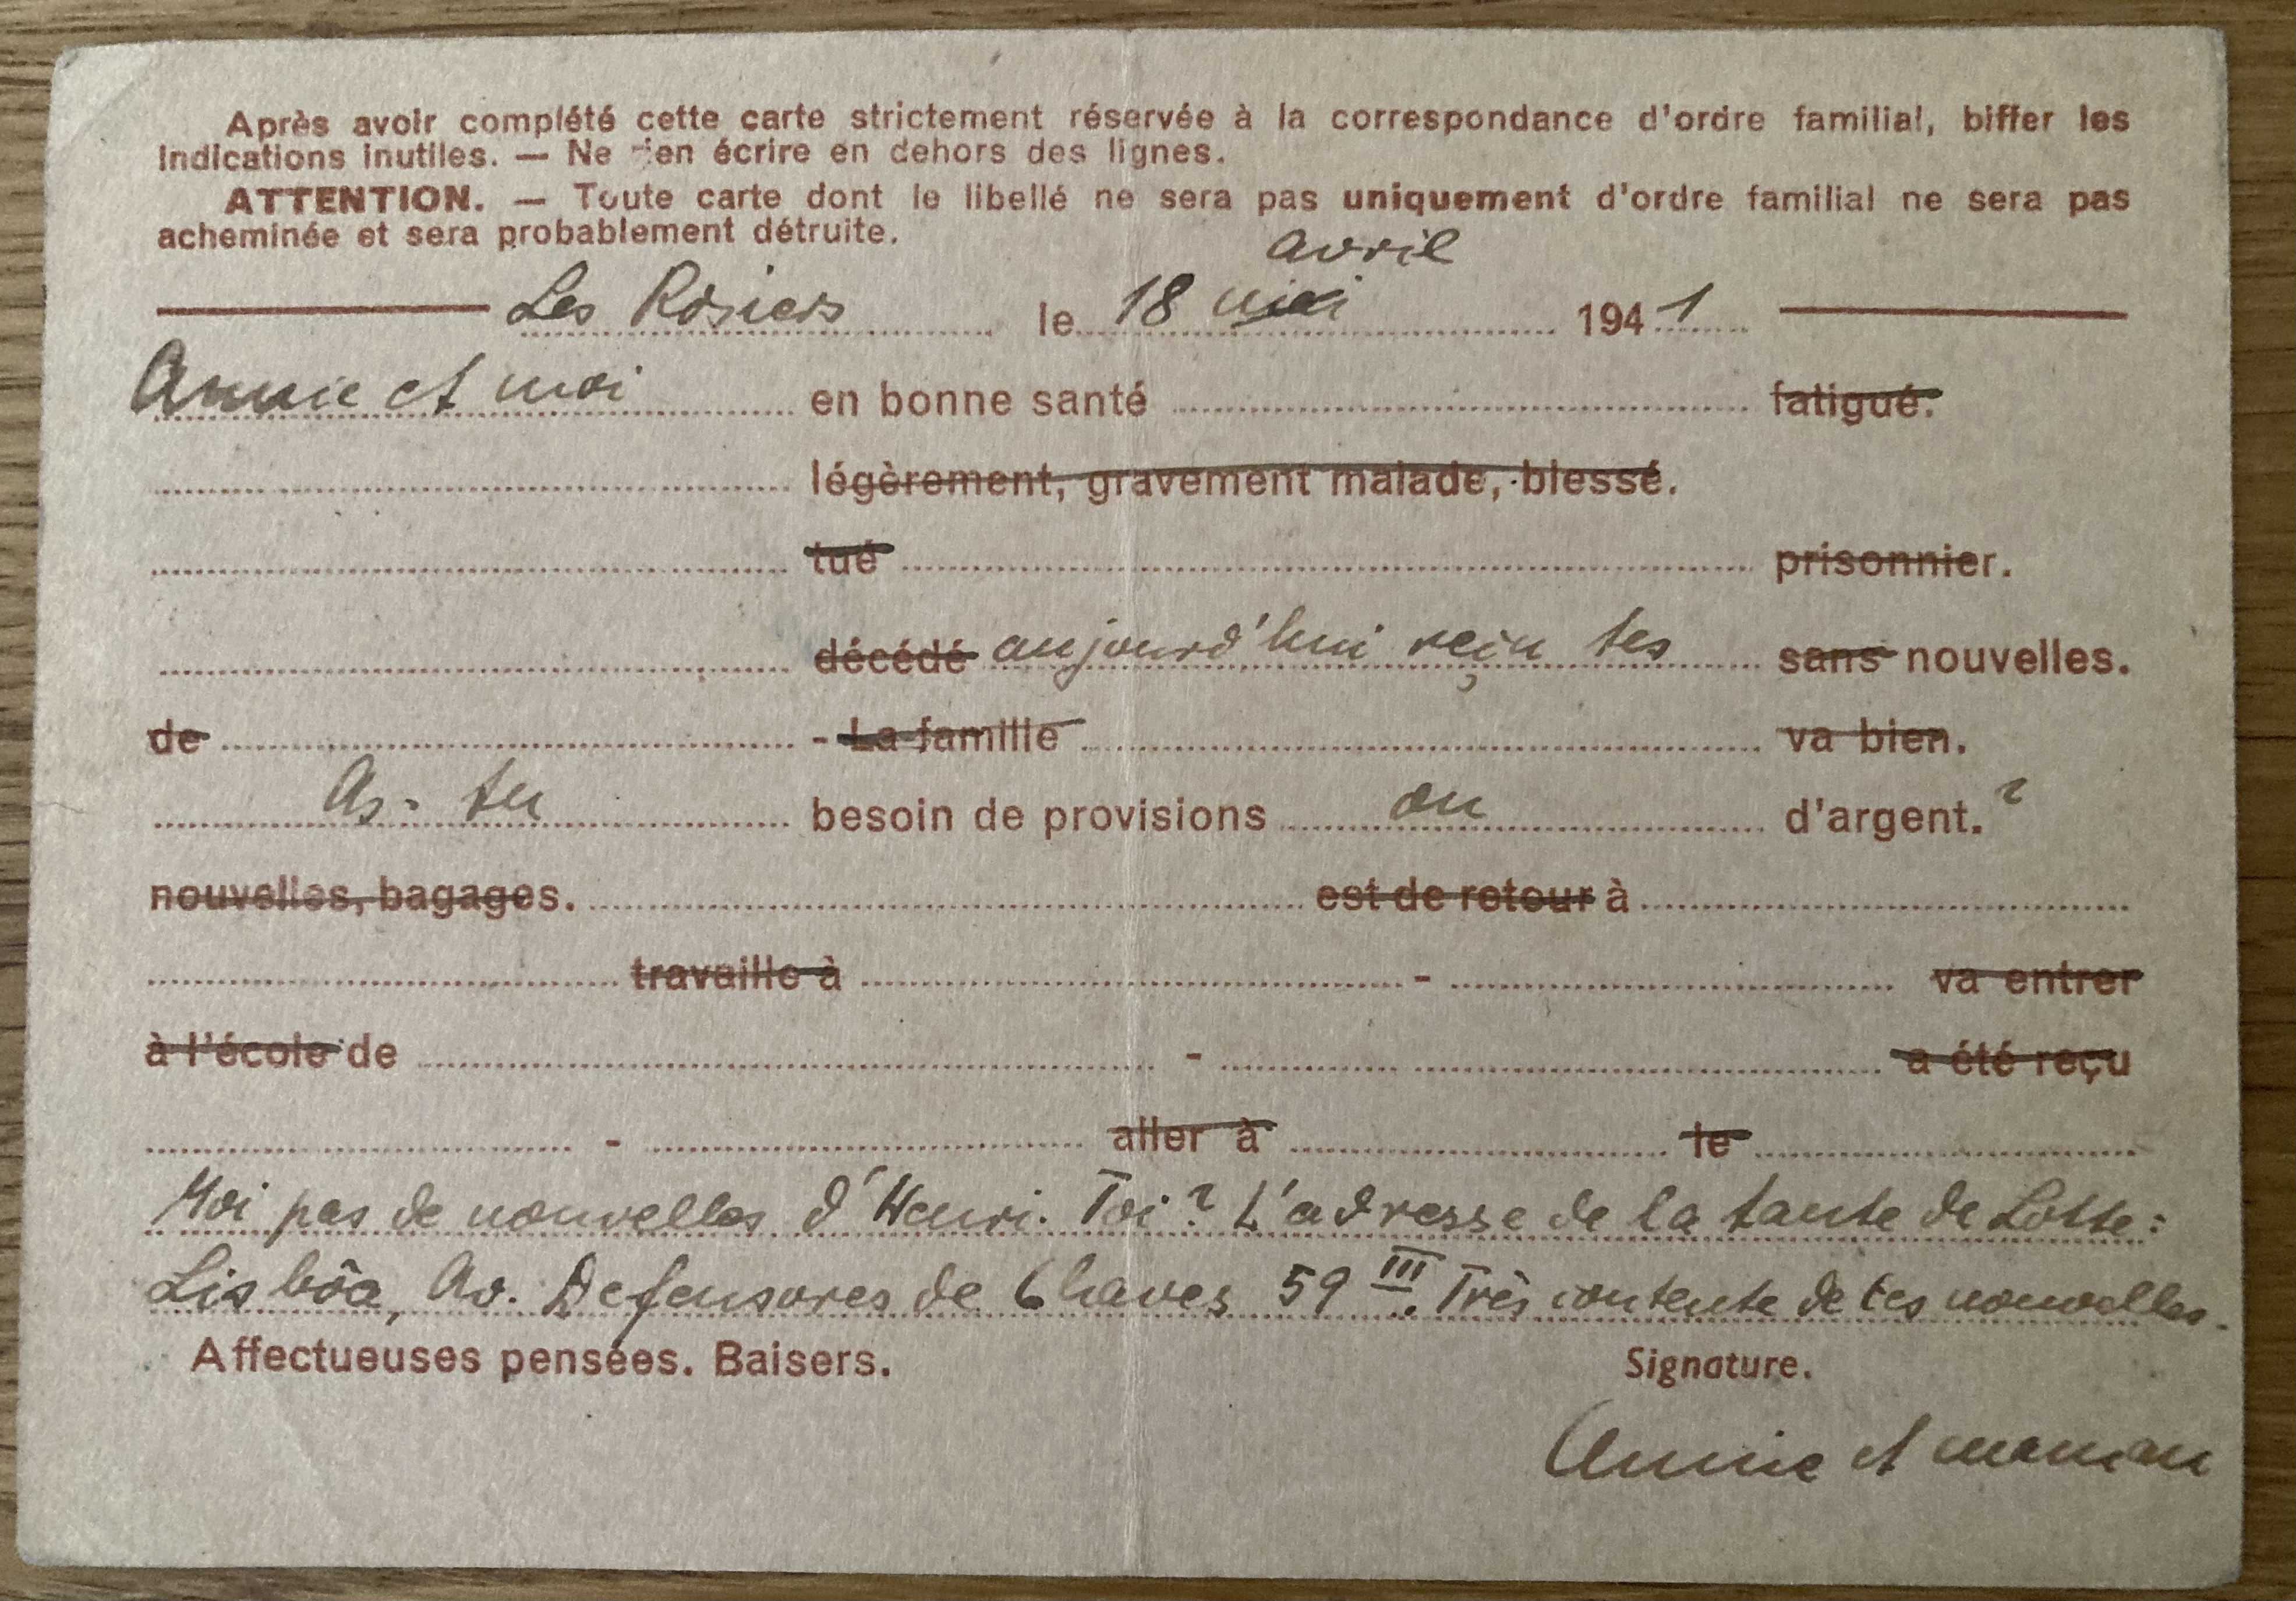 Après avoir complété cette carte strictement réservée à la correspondance d'ordre familial, biffer les
indications inutiles. — Ne rien écrire en dehors des lignes.
ATTENTION. — Toute carte dont le libellé ne sera pas uniquement d'ordre familial ne sera pas
acheminée et sera probablement détruite.
avril
Les Rosiers le 18 mai 194 1
Annie et moi en bonne santé fatigué.
légèrement, gravement malade, blessé.
tué prisonnier.
décédé aujourd'hui reçu tes sans nouvelles.
de - La famille va bien.
As-tu besoin de provisions ou d'argent. ?
nouvelles, bagages. est de retour à
travaille à - va entrer
à l'école de - a été reçu
- aller à le
Moi pas de nouvelles d'Henri. Toi? L'adresse de la tante de Lotte:
Lisbôa, Av. Defensores de Chaves 59 III. Très contente de tes nouvelles.
Affectueuses pensées. Baisers. Signature.
Annie et maman